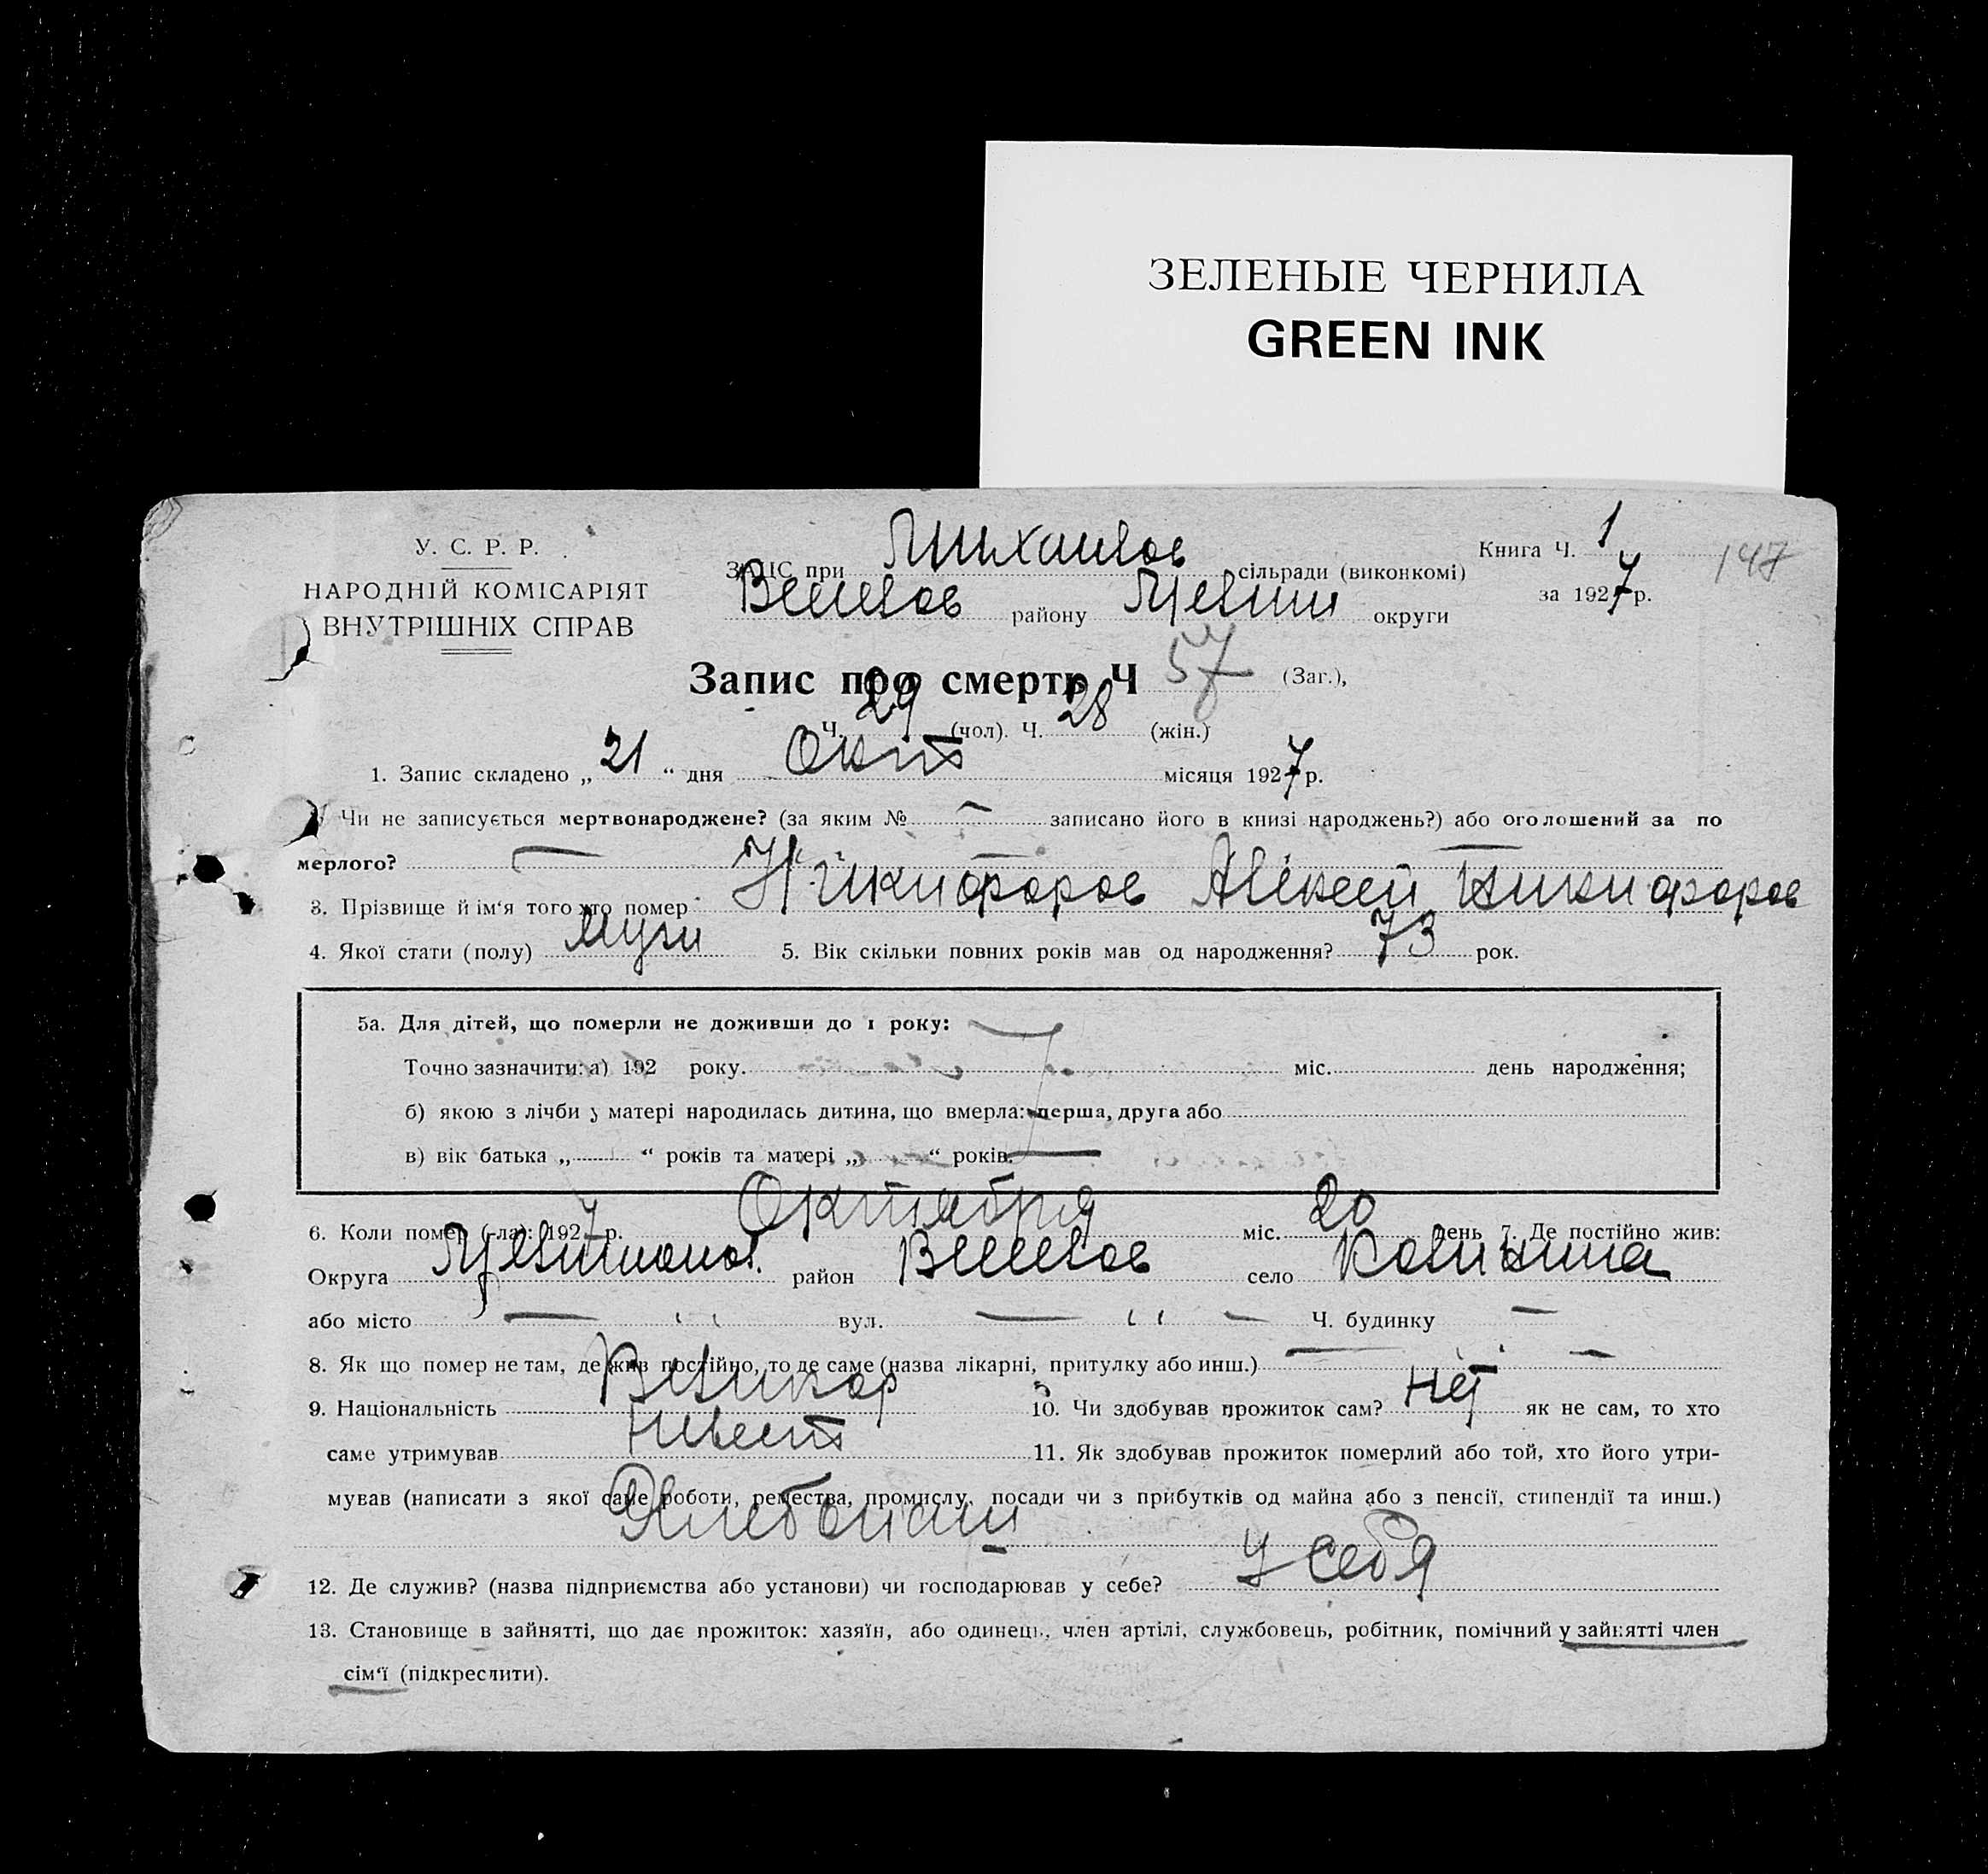 ЗЕЛЕНЫЕ ЧЕРНИЛА
GREEN INK
У. С. Р. Р.
НАРОДНІЙ КОМІСАРІЯТ
ВНУТРІШНІХ СПРАВ
ЗАЦС при Михайлов сільради (виконкомі)
району округи
Книга Ч. 1
147
за 1927 р.
Запис про смерть Ч 57 (Заг.),
Ч. 29 (чол). Ч. 28 (жін.)
1. Запис складено „ 21 “ дня Окт місяця 1927 р.
Чи не записується мертвонароджене? (за яким № — записано його в книзі народжень?) або оголошений за по
мерлого? —
3. Прізвище й ім‘я того хто помер Никифоров Алексей Никифоров
4. Якої стати (полу) муж 5. Вік скільки повних років мав од народження? 73 рок.
5а. Для дітей, що померли не доживши до 1 року: —
Точно зазначити: а) 192 року. міс. день народження;
б) якою з лічби у матері народилась дитина, що вмерла: перша, друга або
в) вік батька „ “ років та матері „ “ років. —
6. Коли помер (-ла): 1927 р. Октября міс. 20 день 7. Де постійно жив:
Округа район село
або місто — вул. — Ч. будинку —
8. Як що помер не там, де жив постійно, то де саме (назва лікарні, притулку або инш.) —
9. Національність Великор 10. Чи здобував прожиток сам? Нет як не сам, то хто
саме утримував 11. Як здобував прожиток померлий або той, хто його утри-
мував (написати з якої саме роботи, ремества, промислу, посади чи з прибутків од майна або з пенсії, стипендії та инш.)
Хлебопаш
12. Де служив? (назва підприємства або установи) чи господарював у себе? У себя
13. Становище в зайнятті, що дає прожиток: хазяїн, або одинець, член артілі, службовець, робітник, помічний у зайнятті член
сім‘ї (підкреслити).